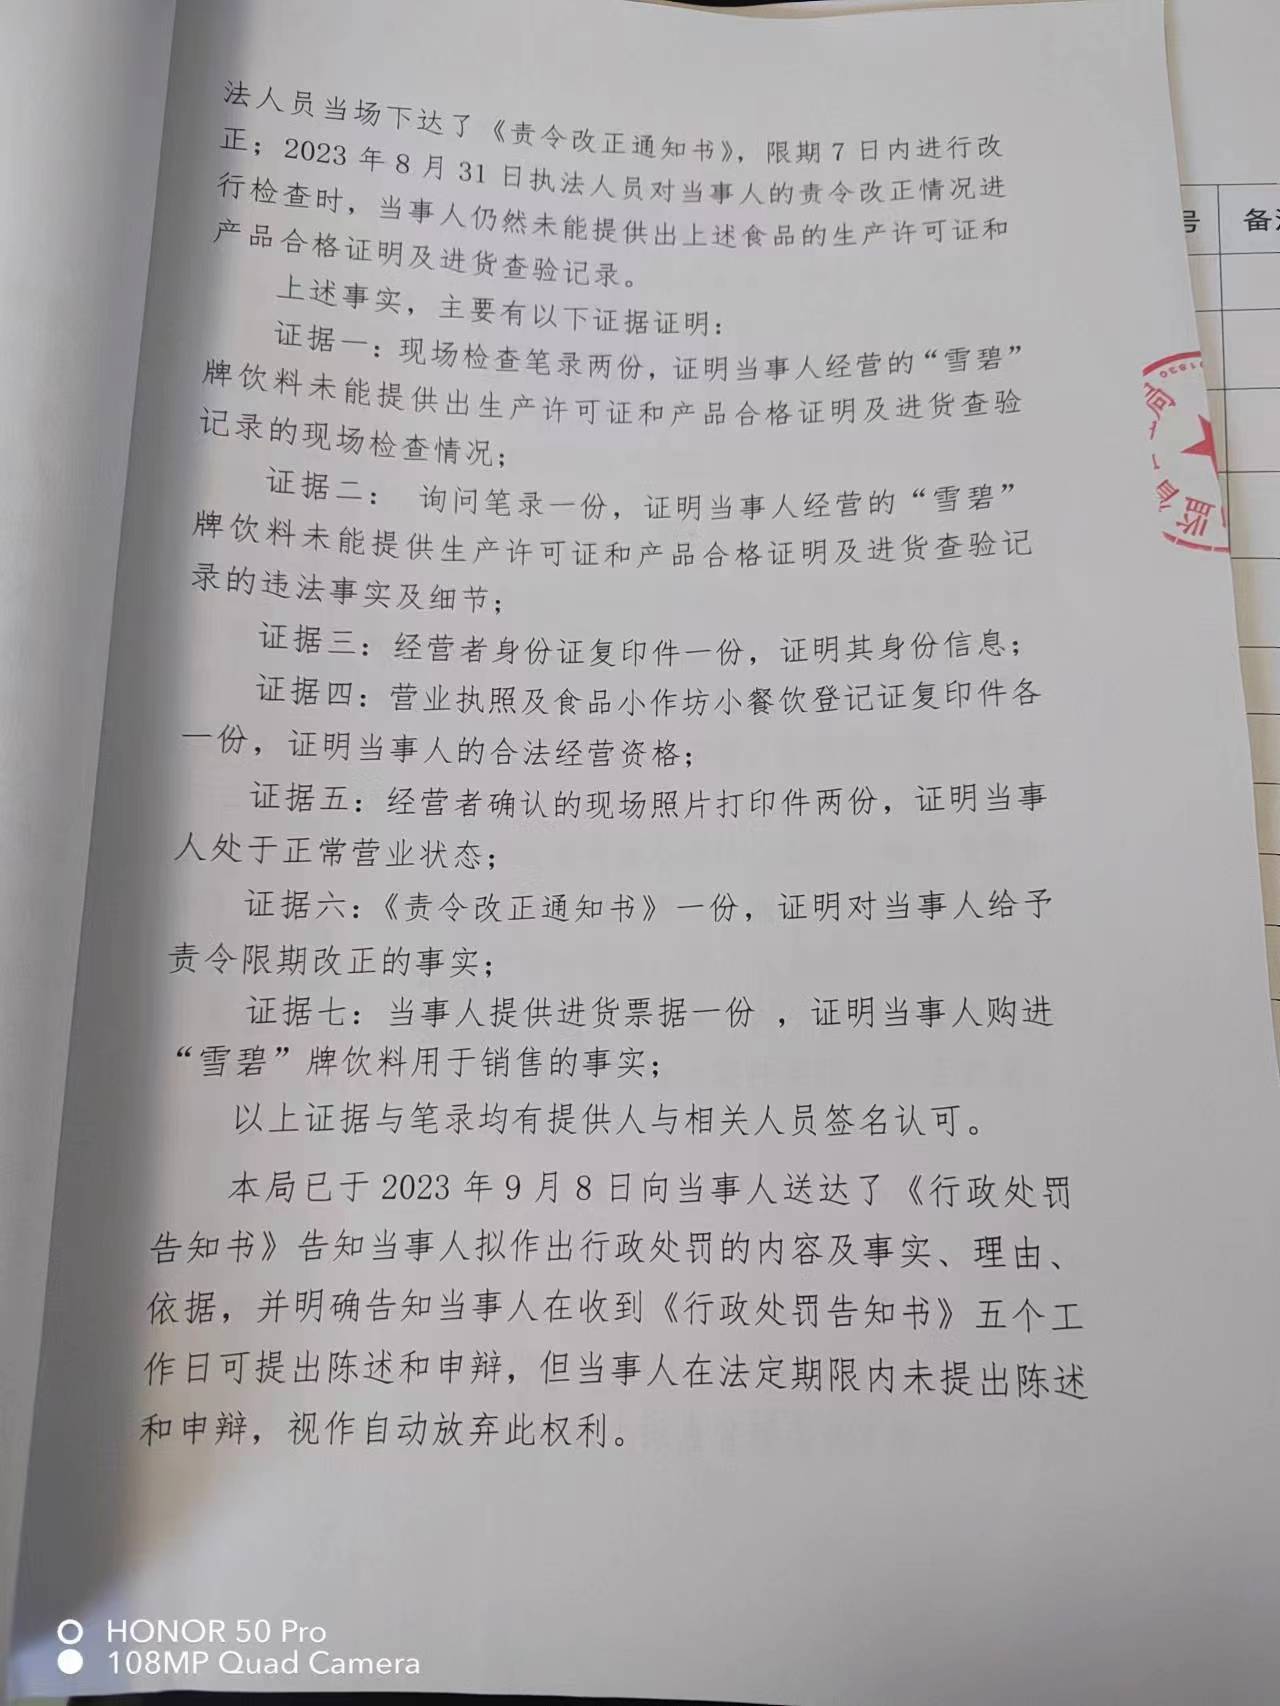 法人员当场下达了《责令改正通知书》，限期7日内进行改
正；2023年8月31日执法人员对当事人的责令改正情况进
行检查时，当事人仍然未能提供出上述食品的生产许可证和
产品合格证明及进货查验记录。
上述事实，主要有以下证据证明：
证据一：现场检查笔录两份，证明当事人经营的“雪碧”
牌饮料未能提供出生产许可证和产品合格证明及进货查验
记录的现场检查情况；
证据二： 询问笔录一份，证明当事人经营的“雪碧”
牌饮料未能提供生产许可证和产品合格证明及进货查验记
录的违法事实及细节；
证据三：经营者身份证复印件一份，证明其身份信息；
证据四：营业执照及食品小作坊小餐饮登记证复印件各
一份，证明当事人的合法经营资格；
证据五：经营者确认的现场照片打印件两份，证明当事
人处于正常营业状态；
证据六：《责令改正通知书》一份，证明对当事人给予
责令限期改正的事实；
证据七：当事人提供进货票据一份 ，证明当事人购进
“雪碧”牌饮料用于销售的事实；
以上证据与笔录均有提供人与相关人员签名认可。
本局已于2023年9月8日向当事人送达了《行政处罚
告知书》告知当事人拟作出行政处罚的内容及事实、理由、
依据，并明确告知当事人在收到《行政处罚告知书》五个工
作日可提出陈述和申辩，但当事人在法定期限内未提出陈述
和申辩，视作自动放弃此权利。
号 备
局
监
HONOR 50 Pro
108MP Quad Camera